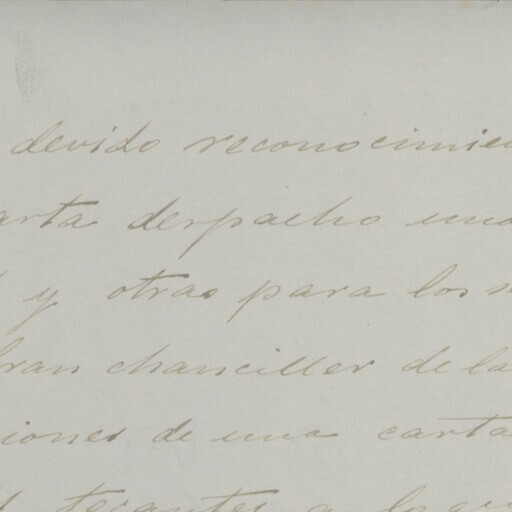 devido reconocimien
arta despacho una
y otras para los
Gran chanciller de la
iones de una carta
tocantes a lo